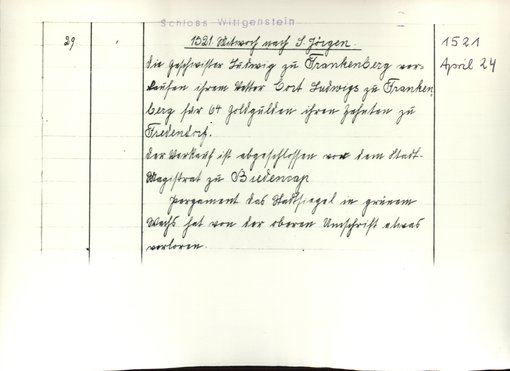 Schloss Wittgenstein
29
1521 Mitwoch nach S. Jörgen.
1521
April 24
die Geschwister Ludwig zu Frankenberg ver-
kaufen ihrem Vetter Cort Ludwigs zu Franken
berg für 64 Goldgulden ihren Zehnten zu
Fredendorf.
der Verkauf ist abgeschlossen vor dem Stadt-
Magistrat zu Biedencap
Pergament das Stadtsiegel in grünem
Wachs hat von der oberen Umschrift etwas
verloren.